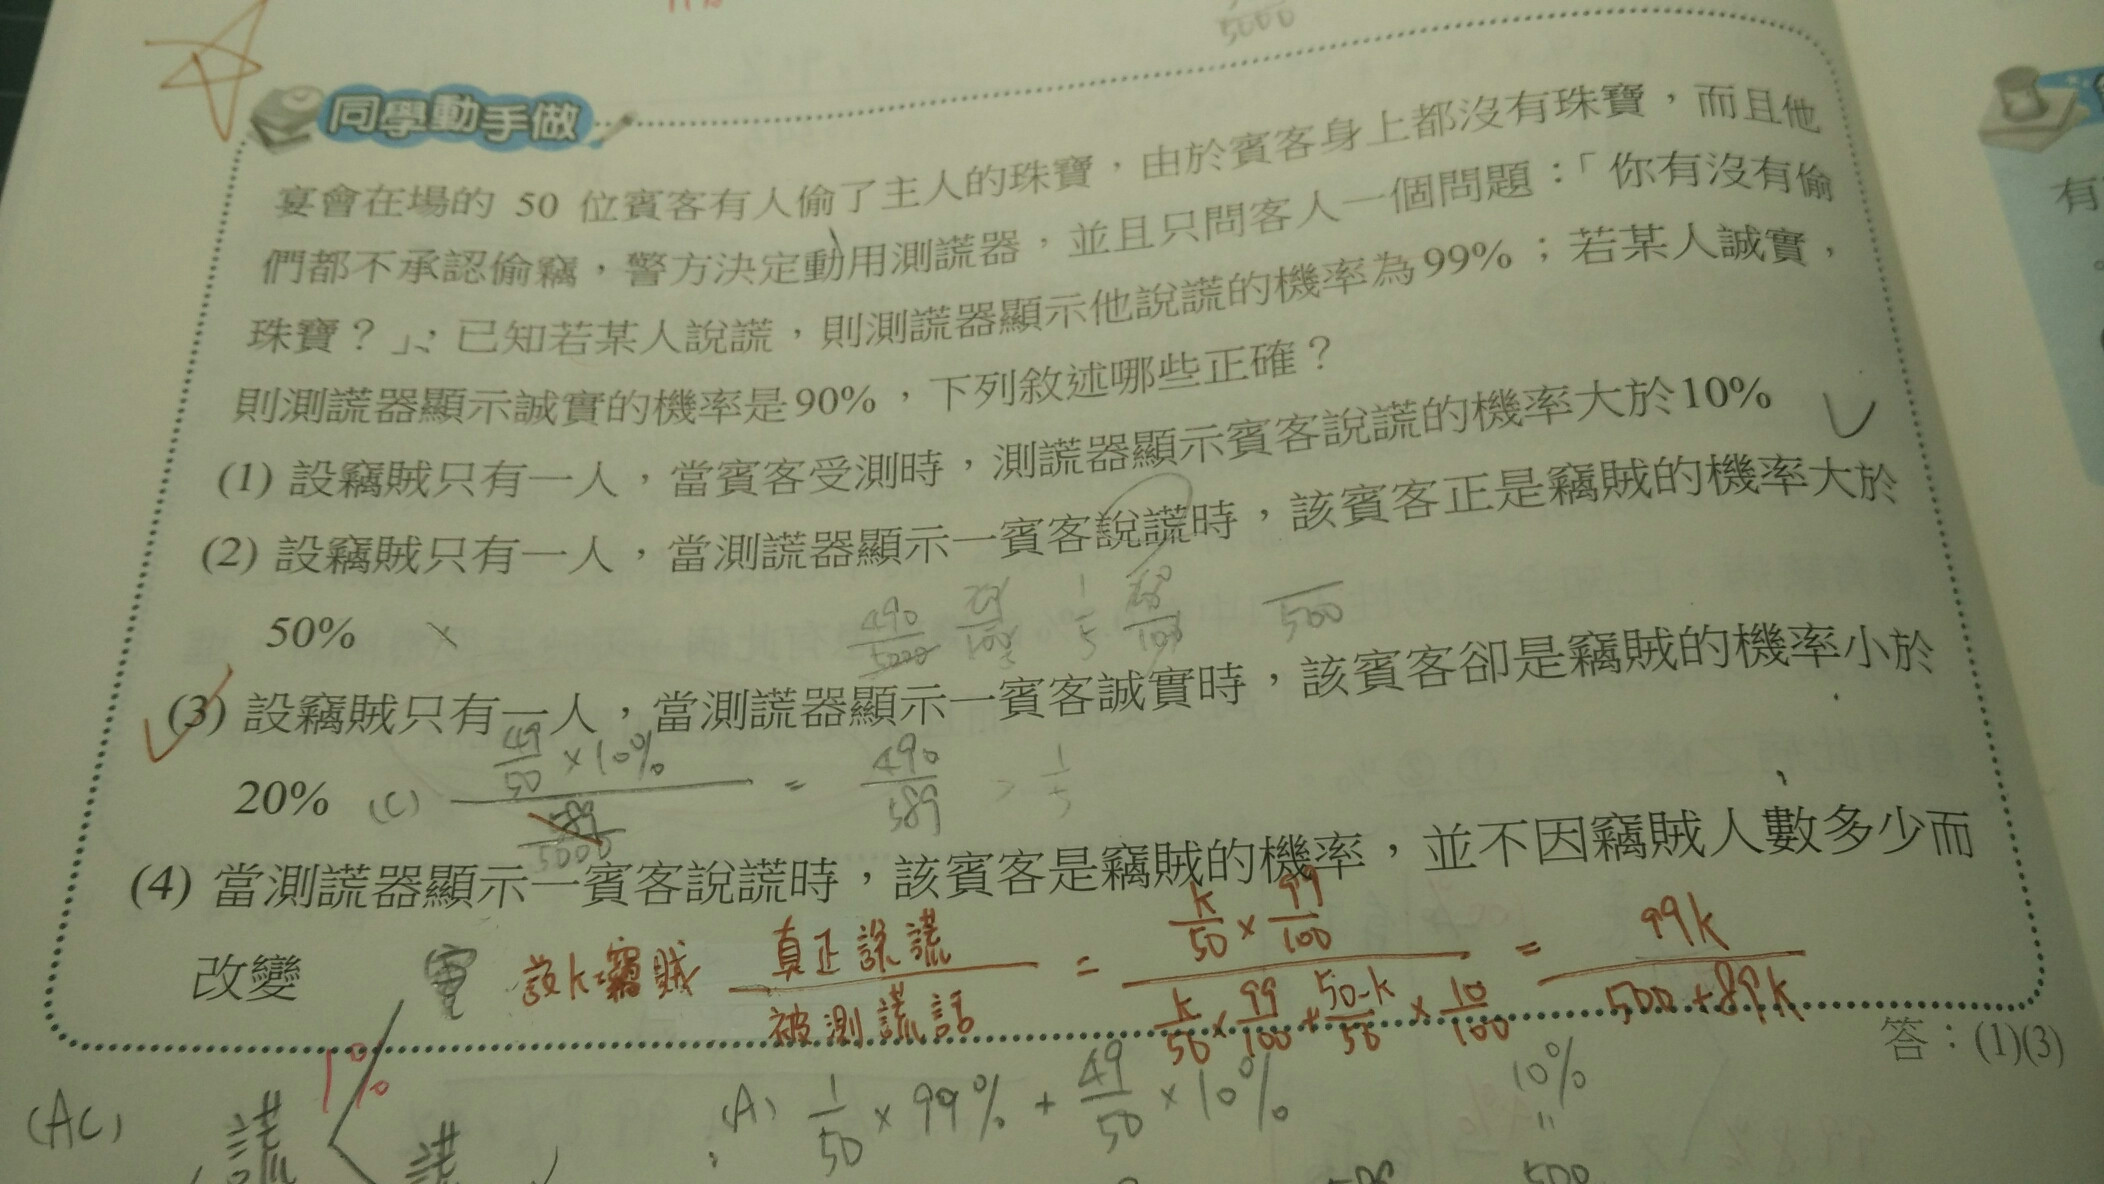 5000
同學動手做
宴會在場的 50 位賓客有人偷了主人的珠寶，由於賓客身上都沒有珠寶，而且他
們都不承認偷竊，警方決定動用測謊器，並且只問客人一個問題：「你有沒有偷
珠寶？」；已知若某人說謊，則測謊器顯示他說謊的機率為99%；若某人誠實，
則測謊器顯示誠實的機率是90%，下列敘述哪些正確？
(1) 設竊賊只有一人，當賓客受測時，測謊器顯示賓客說謊的機率大於10%
(2) 設竊賊只有一人，當測謊器顯示一賓客說謊時，該賓客正是竊賊的機率大於
50% ×
490/5000 1/5 /500
(3) 設竊賊只有一人，當測謊器顯示一賓客誠實時，該賓客卻是竊賊的機率小於
20% (C) 49/50 × 10% / 589/5000 = 490/589 > 1/5
(4) 當測謊器顯示一賓客說謊時，該賓客是竊賊的機率，並不因竊賊人數多少而
改變
設k竊賊 真正說謊/被測謊話 = k/50 × 99/100 / k/50 × 99/100 + 50-k/50 × 10/100 = 99k/500+89k
答：(1)(3)
(AC) 謊 1% 謊 (A) 1/50 × 99% + 49/50 × 10% 10% = 500
有